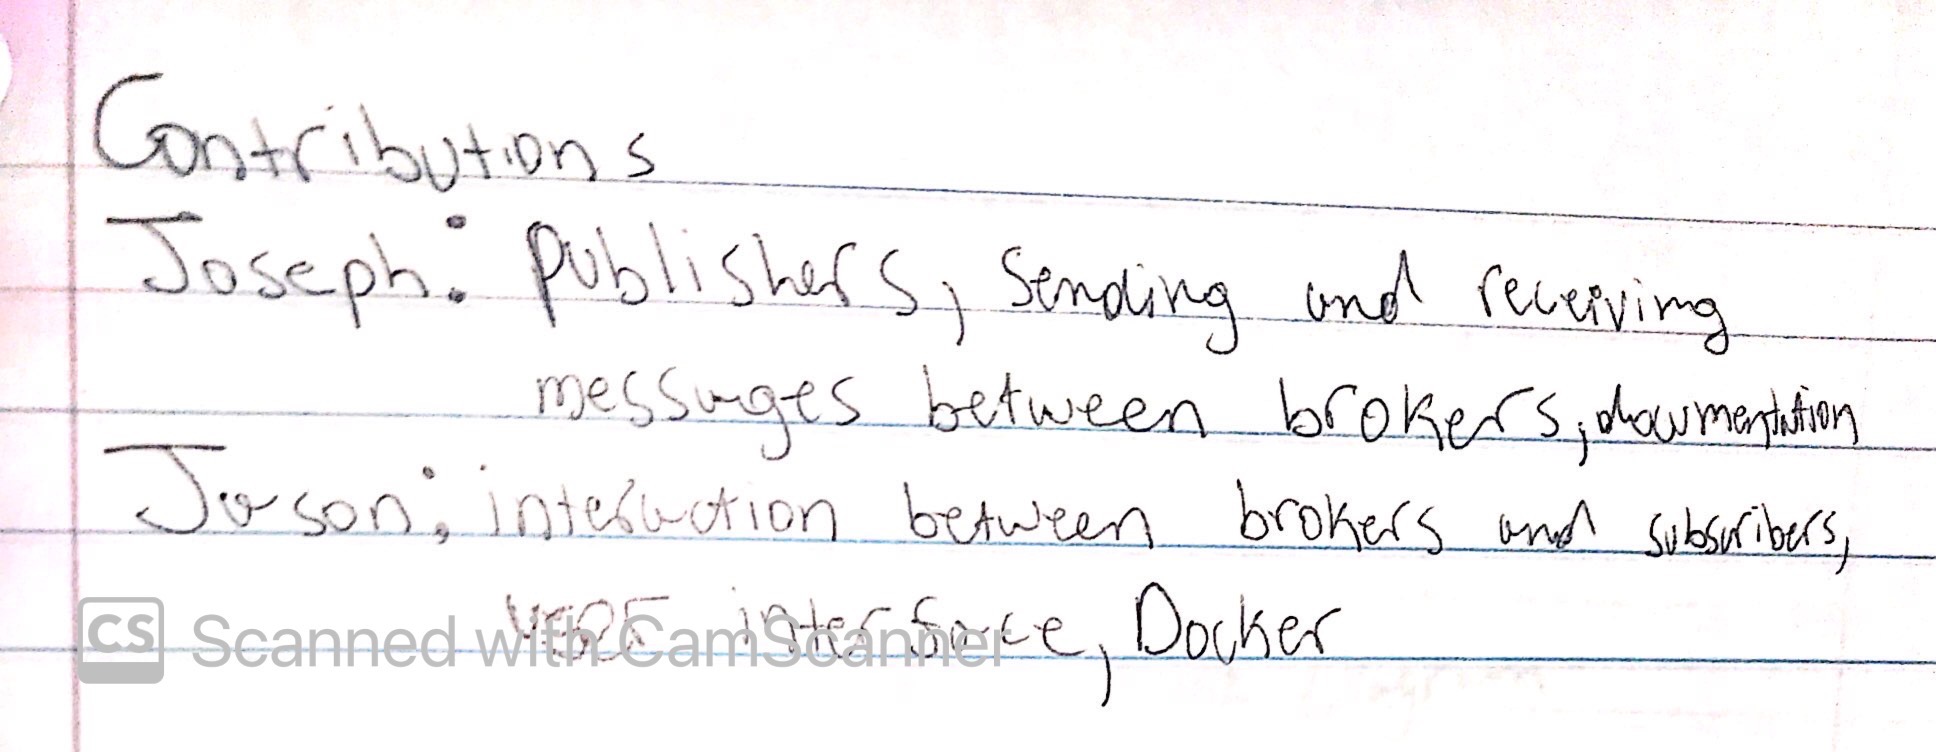 Contributions
Joseph: Publishers, Sending and receiving
messages between brokers, documentation
Jason: interaction between brokers and subscribers,
user interface, Docker
CS Scanned with CamScanner